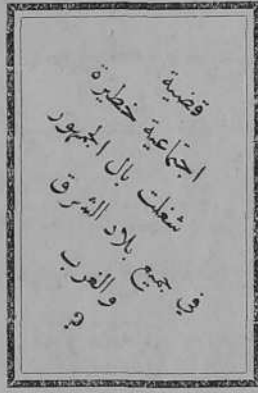 قضية
اجتماعية خطيرة
شغلت بال الجمهور
في جميع بلاد الشرق
والغرب
هي